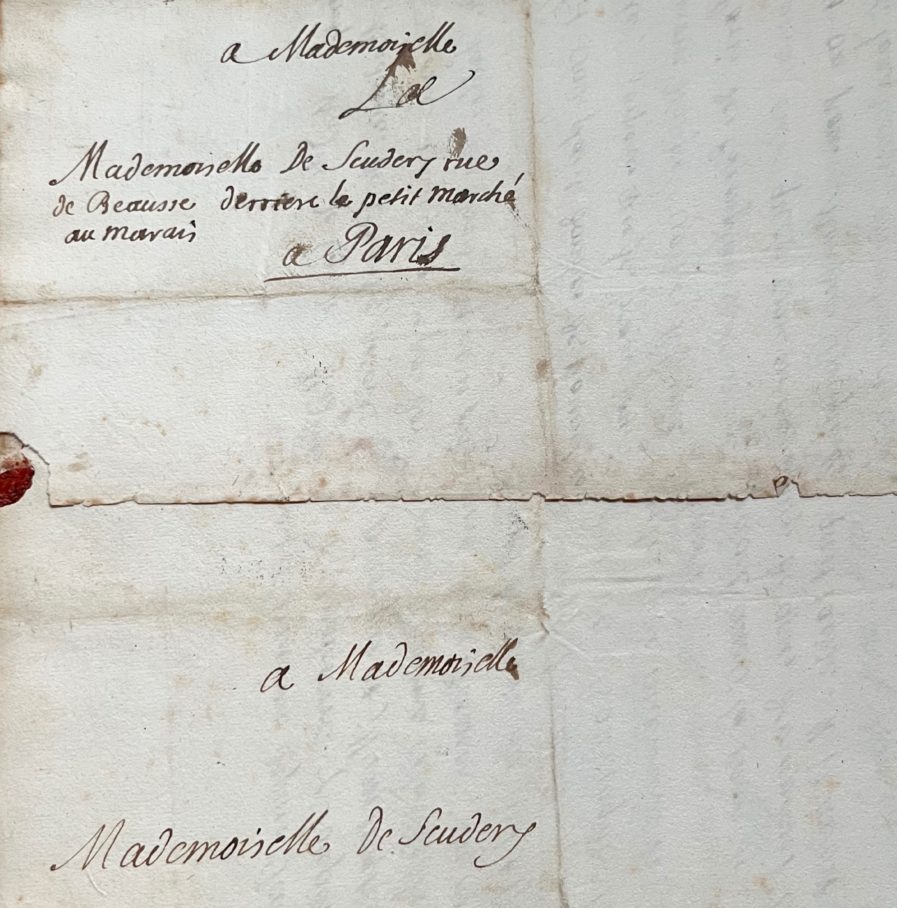 a Mademoiselle
Mademoiselle De Scudery rue
de Beausse derriere le petit marché
au marais
a Paris
a Mademoiselle
Mademoiselle De Scudery